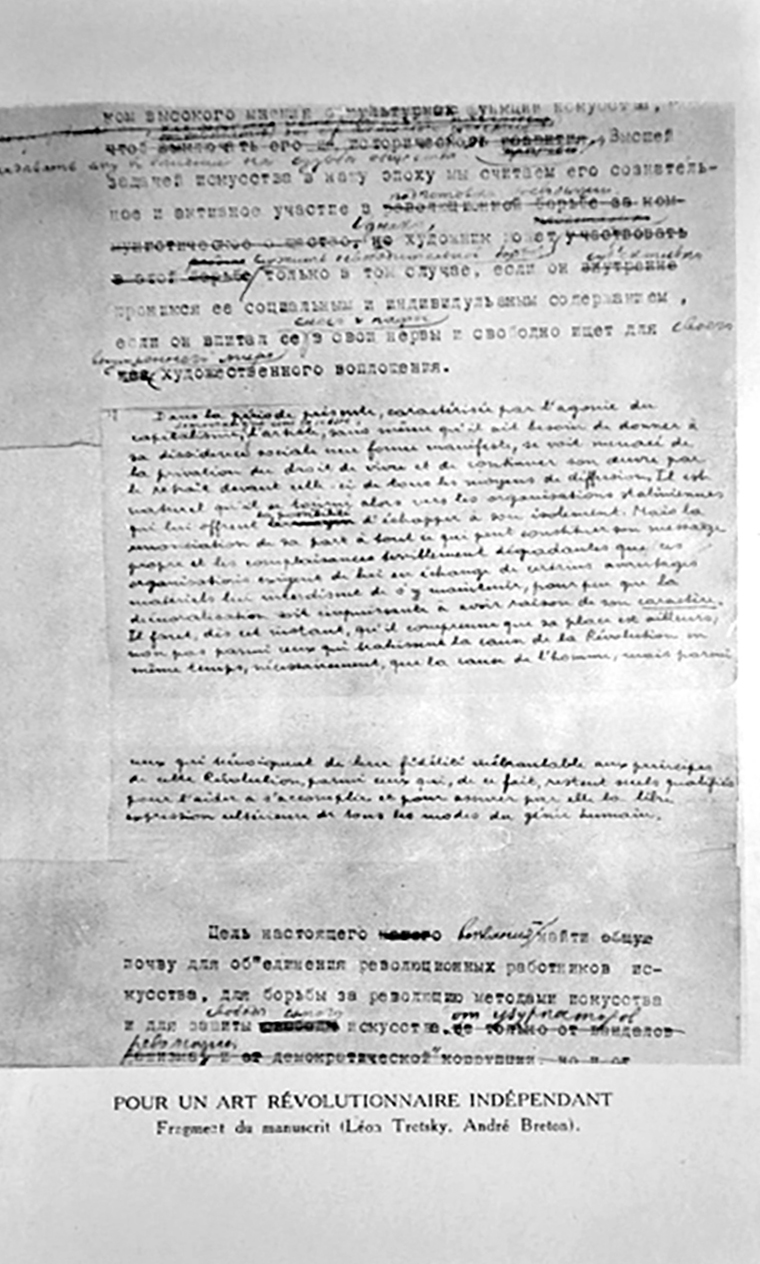 ком высокого мнения о культурных функции искусства,
чтоб выключать его из исторического развития. Высшей
задачей искусства в нашу эпоху мы считаем его сознатель-
подготовке революции
ное и активное участие в революционной борьбе за ком-
Однако,
мунистическое общество, но художник может участвовать
служить освободительной борьбе субъективно
в этой борьбе только в том случае, если он внутренне
проникся ее социальным и индивидульаным содержанием,
если он впитал ее в свои нервы и свободно ищет для своего
внутреннего мира
нея художественного воплощения.
Dans la période présente, caractérisée par l'agonie du
capitalisme, l'artiste, sans même qu'il ait besoin de donner à
sa dissidence sociale une forme manifeste, se voit menacé de
la privation du droit de vivre et de continuer son œuvre par
le retrait devant celle-ci de tous les moyens de diffusion. Il est
naturel qu'il se tourne alors vers les organisations staliniennes
la possibilité
qui lui offrent d'échapper à son isolement. Mais la
renonciation de sa part à tout ce qui peut constituer son message
propre et les complaisances terriblement dégradantes que ces
organisations exigent de lui en échange de certains avantages
matériels lui interdisent de s'y maintenir, pour peu que la
démoralisation soit impuissante à avoir raison de son caractère.
Il faut, dès cet instant, qu'il comprenne que sa place est ailleurs,
non pas parmi ceux qui trahissent la cause de la Révolution en
même temps, nécessairement, que la cause de l'homme, mais parmi
ceux qui témoignent de leur fidélité inébranlable aux principes
de cette Révolution, parmi ceux qui, de ce fait, restent seuls qualifiés
pour l'aider à s'accomplir et pour assurer par elle la libre
expression ultérieure de tous les modes du génie humain.
Цель настоящего воззвания найти общую
почву для об"единения революционных работников ис-
кусства, для борьбы за революцию методами искусства
свободы самого от узурпаторов
и для защиты искусства не только от вандалов
революции
и от демократической" коррупции, но и от
POUR UN ART RÉVOLUTIONNAIRE INDÉPENDANT
Fragment du manuscrit (Léon Trotsky, André Breton).